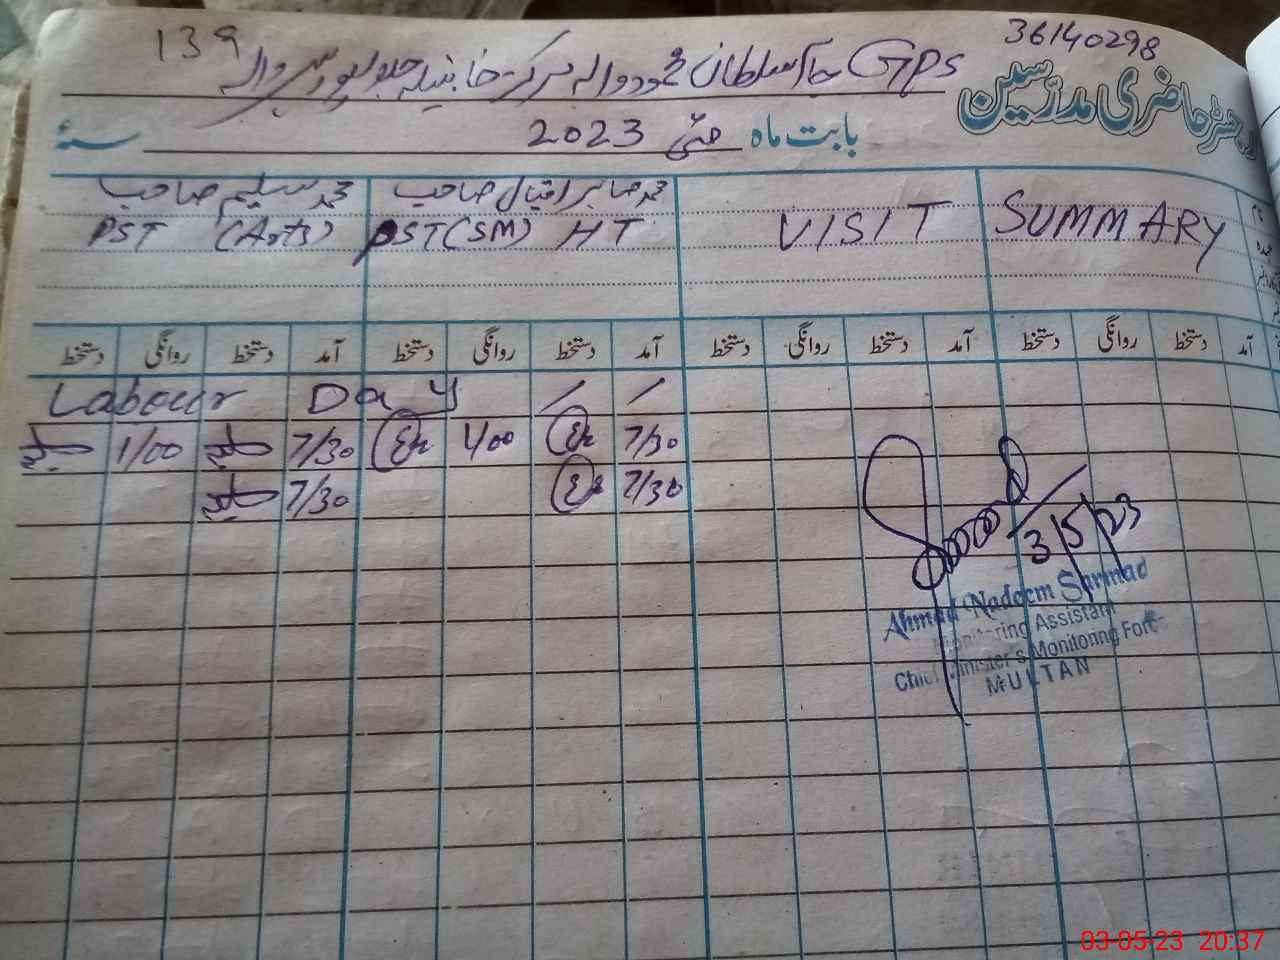 139
36140298
رجسٹر حاضری مدرسین
Gps چاہ سلطان محمود والہ مرکز خانبیلہ جلالپور پیروالہ
بابت ماہ مئی 2023 سنہ
SUMMARY
VISIT
محمد صابر اقبال صاحب
PST(SM) HT
محمد سلیم صاحب
PST (Arts)
آمد دستخط روانگی دستخط آمد دستخط روانگی دستخط آمد دستخط روانگی دستخط آمد دستخط روانگی دستخط
Labour Day / /
7/30 1/00 7/30 1/00
7/30 7/30
3/5/23
Ahmad Nadeem Sarmad
Monitoring Assistant
Chief Minister's Monitoring Force
MULTAN
03-05-23 20:37